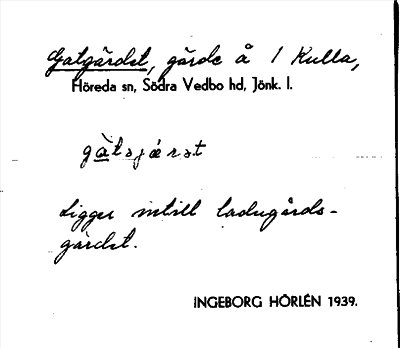 Gatgärdet, gärde å 1 Kulla,
Höreda sn, Södra Vedbo hd, Jönk. l.
gàtsjæ̀rət
Ligger intill ladugårds-
gärdet.
INGEBORG HÖRLÉN 1939.